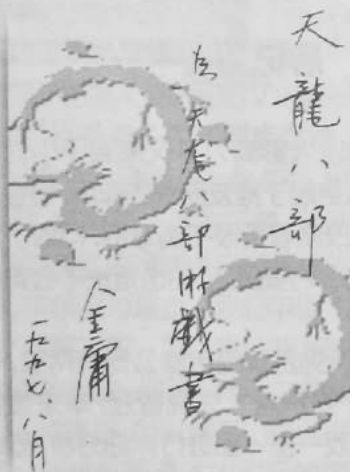 天龍八部
為天龍八部游戲書
金庸
一九九七、八月